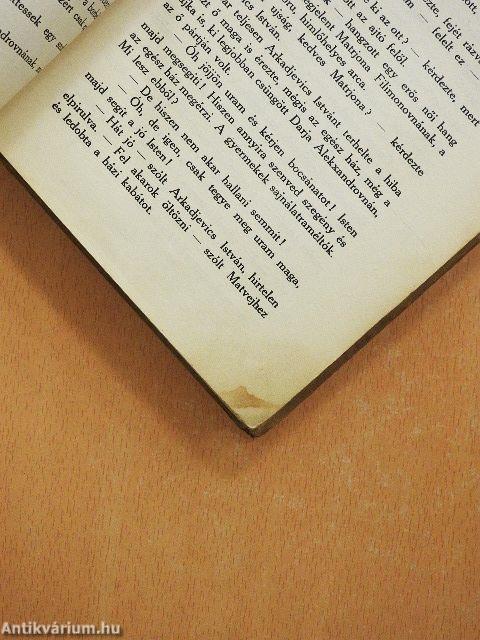 ttessek egy
fejét rázva
ki az ott? — kérdezte, mert
az ajtó felől.
hangzott egy erős női hang
megjelent Matrjona Filimonovnának, a
himlőhelyes arca.
ujság, kedves Matrjona? — kérdezte
teljesen Arkadjevics Istvánt terhelte a hiba
ő maga is érezte, mégis az egész ház, még a
is, ki legjobban csüngött Darja Alekxandrovnán,
az ő pártján volt.
— Ój, jöjjön uram és kérjen bocsánatot! Isten
majd megsegíti! Hiszen annyira szenved szegény és
az egész ház megérzi. A gyermekek sajnálatraméltók.
Mi lesz ebből?
— De hiszen nem akar hallani semmit!
— Ój, de igen, csak tegye meg uram maga,
majd segít a jó Isten!
— Hát jó — szólt Arkadjevics István, hirtelen
elpirulva. — Fel akarok öltözni — szólt Matvejhez
és ledobta a házi kabátot.
Antikvárium.hu